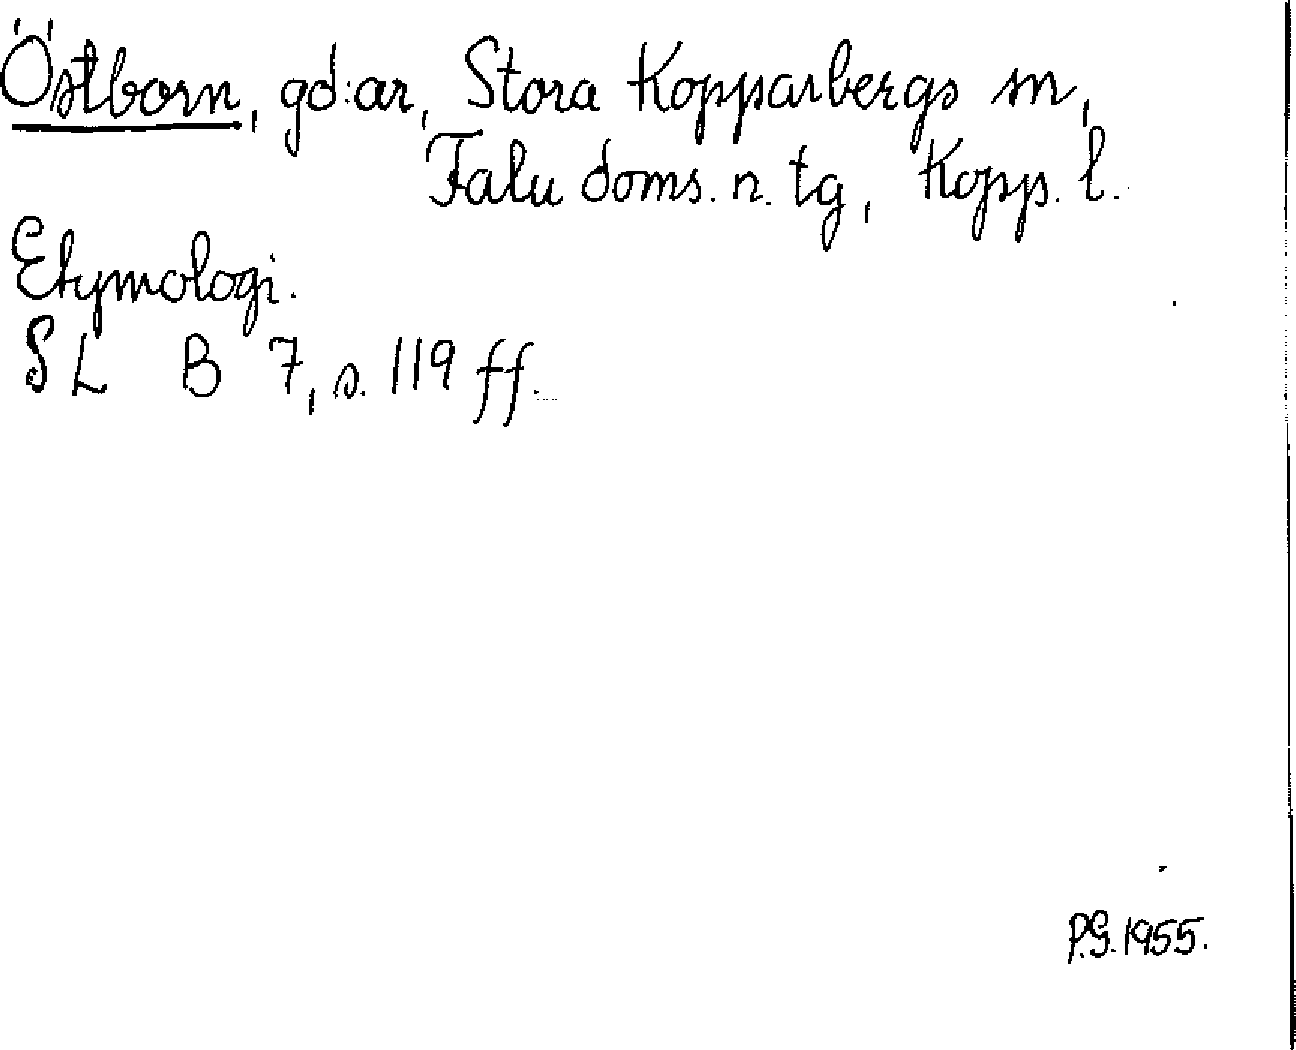 Östborn, gd:ar, Stora Kopparbergs sn,
Falu doms. n. tg, Kopp. l.
Etymologi.
SL B 7, s. 119 ff.
P.G. 1955.